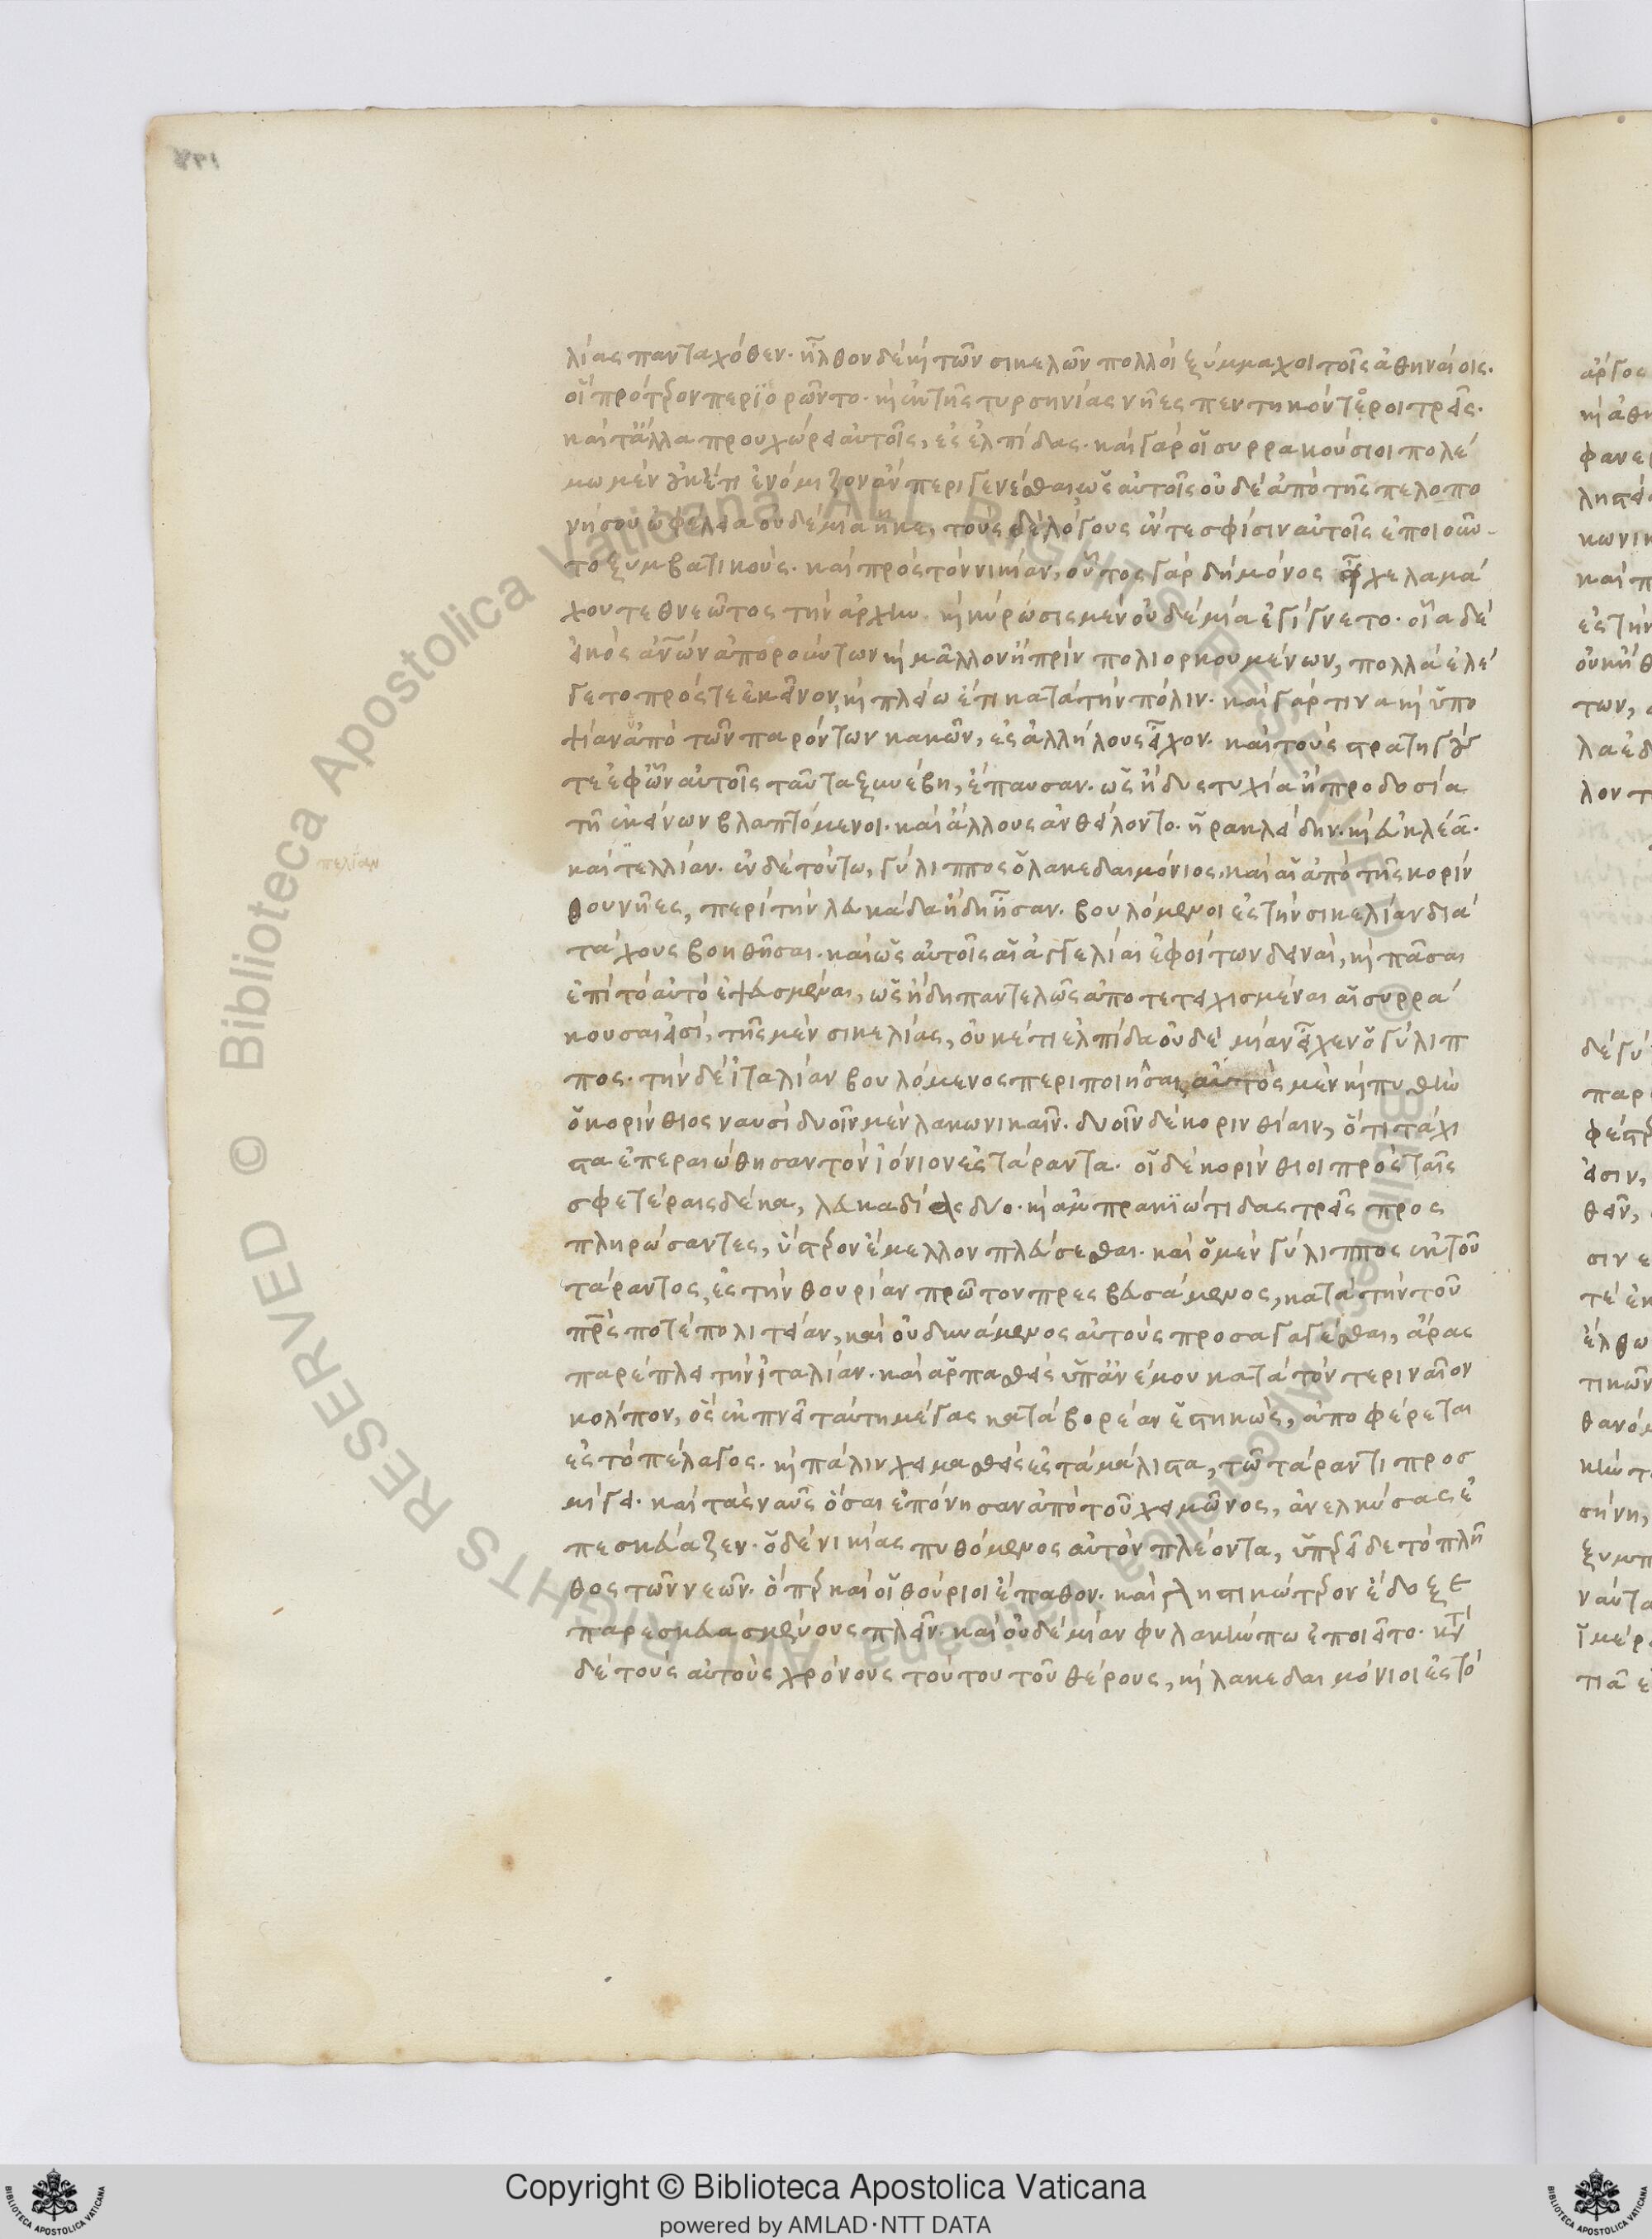 λίας πανταχόθεν· ἦλθον δὲ καὶ τῶν σικελῶν πολλοὶ ξύμμαχοι τοῖς ἀθηναίοις·
οἳ πρότερον περϊεορῶντο· καὶ ἐκ τῆς τυρσηνίας νῆες πεντηκόντεροι τρεῖς·
καὶ τἄλλα προυχώρει αὐτοῖς, ἐς ἐλπίδας· καὶ γὰρ οἱ συρρακούσιοι πολέ
μω μὲν οὐκέτι ἐνόμιζον ἂν περιγενέσθαι ὡς αὐτοῖς οὐδὲ ἀπὸ τῆς πελοπο
νήσου ὠφέλεια οὐδεμία ἧκε, τοὺς δὲ λόγους ἔν τε σφίσιν αὐτοῖς ἐποιοῦν
το ξυμβατικούς· καὶ πρὸς τὸν νικίαν, οὗτος γὰρ δὴ μόνος εἶχε λαμά
χου τεθνεῶτος τὴν ἀρχήν· καὶ κύρωσις μὲν οὐδεμία ἐγίγνετο· οἷα δὲ
εἰκὸς ἀνῶν ἀπορούντων καὶ μᾶλλον ἢ πρὶν πολιορκουμένων, πολλὰ ἐλέ
γετο πρός τε ἐκεῖνον, καὶ πλείω ἔτι κατὰ τὴν πόλιν· καὶ γάρ τινα καὶ ὑπο
ψίαν ἀπὸ τῶν παρόντων κακῶν, ἐς ἀλλήλους εἶχον· καὶ τοὺς στρατηγούς
τε ἐφ' ὧν αὐτοῖς ταῦτα ξυνέβη, ἔπαυσαν· ὡς ἢ δυστυχία ἢ προδοσία
τῆ ἐκείνων βλαπτόμενοι· καὶ ἄλλους ἀνθείλοντο· ἡρακλείδην· καὶ εὐκλέα·
καὶ τελλίαν· ἐν δὲ τούτω, γύλιππος ὁ λακεδαιμόνιος καὶ αἱ ἀπὸ τῆς κορίν
θου νῆες, περὶ τὴν λευκάδα ἤδη ἦσαν· βουλόμενοι ἐς τὴν σικελίαν διὰ
τάχους βοηθῆσαι· καὶ ὡς αὐτοῖς αἱ ἀγγελίαι ἐφοίτων δειναὶ, καὶ πᾶσαι
ἐπὶ τὸ αὐτὸ ἐψευσμέναι, ὡς ἤδη παντελῶς ἀποτετειχισμέναι αἱ συρρά
κουσαι εἰσὶ, τῆς μὲν σικελίας, οὐκέτι ἐλπίδα οὐδεμίαν εἶχεν ὁ γύλιπ
πος· τὴν δὲ ἰταλίαν βουλόμενος περιποιῆσαι, αὐτὸς μὲν καὶ πυθὴν
ὁ κορίνθιος ναυσὶ δυοῖν μὲν λακωνικαῖν· δυοῖν δὲ κορινθίαιν, ὅτι τάχι
στα ἐπεραιώθησαν τὸν ἰόνιον ἐς τάραντα· οἱ δὲ κορίνθιοι πρὸς ταῖς
σφετέραις δέκα, λευκαδίας δύο· καὶ ἀμπρακϊώτιδας τρεῖς προς
πληρώσαντες, ὕστερον ἔμελλον πλεύσεσθαι· καὶ ὁ μὲν γύλιππος ἐκ τοῦ
τάραντος, ἐς τὴν θουρίαν πρῶτον πρεσβευσάμενος, κατὰ τὴν τοῦ
πρς ποτὲ πολιτείαν, καὶ οὐ δυνάμενος αὐτοὺς προσαγαγέσθαι, ἄρας
παρέπλει τὴν ἰταλίαν· καὶ ἁρπασθεὶς ὑπ' ἀνέμου κατὰ τὸν τεριναῖον
κόλπον, ὃς ἐκπνεῖ ταύτη μέγας κατὰ βορέαν ἑστηκὼς, ἀποφέρεται
ἐς τὸ πέλαγος· καὶ πάλιν χειμασθεὶς ἐς τὰ μάλιστα, τῶ τάραντι προσ
μίγει· καὶ τὰς ναῦς ὅσαι ἐπόνησαν ἀπὸ τοῦ χειμῶνος, ἀνελκύσας ἐ
πεσκεύαζεν· ὁ δὲ νικίας πυθόμενος αὐτὸν πλέοντα, ὑπερεῖδε τὸ πλῆ
θος τῶν νεῶν· ὅπερ καὶ οἱ θούριοι ἔπαθον· καὶ ληστικώτερον ἔδοξε
παρεσκευασμένους πλεῖν· καὶ οὐδεμίαν φυλακήν πω ἐποιεῖτο· κατὰ
δὲ τοὺς αὐτοὺς χρόνους τούτου τοῦ θέρους, καὶ λακεδαιμόνιοι ἐς τὸ
Copyright © Biblioteca Apostolica Vaticana
powered by AMLAD·NTT DATA